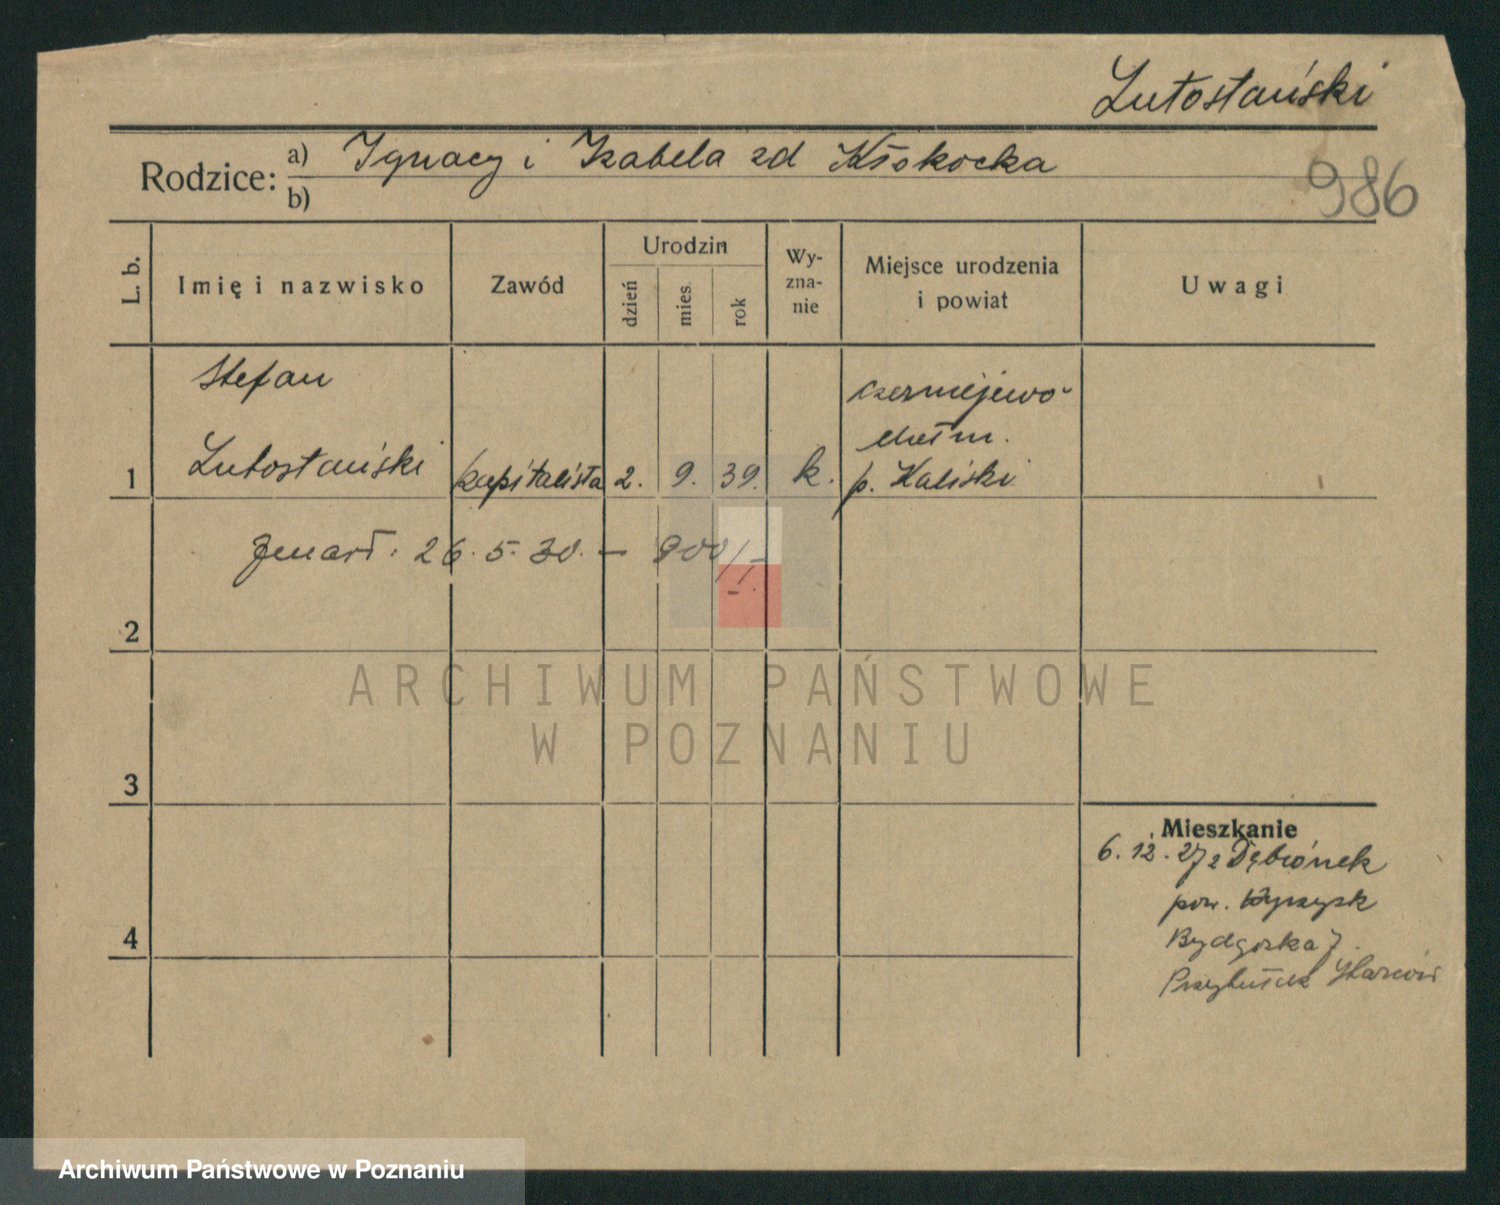 Lutostański
Rodzice: a) Ignacy i Izabela zd Kłokocka
b)
986
L. b.
Imię i nazwisko
Zawód
Urodzin
dzień
mies.
rok
Wy-
zna-
nie
Miejsce urodzenia
i powiat
Uwagi
Stefan
Lutostański
kapitalista
2. 9. 39.
k.
czerniejewo
chełm.
p. Kaliski
1
zmarł. 26. 5. 30. – 900/I
2
3
4
Mieszkanie
6. 12. 27 z Dębionek
pow. Wyrzysk
Bydgoska 7.
Przytułek
ARCHIWUM PAŃSTWOWE
W POZNANIU
Archiwum Państwowe w Poznaniu